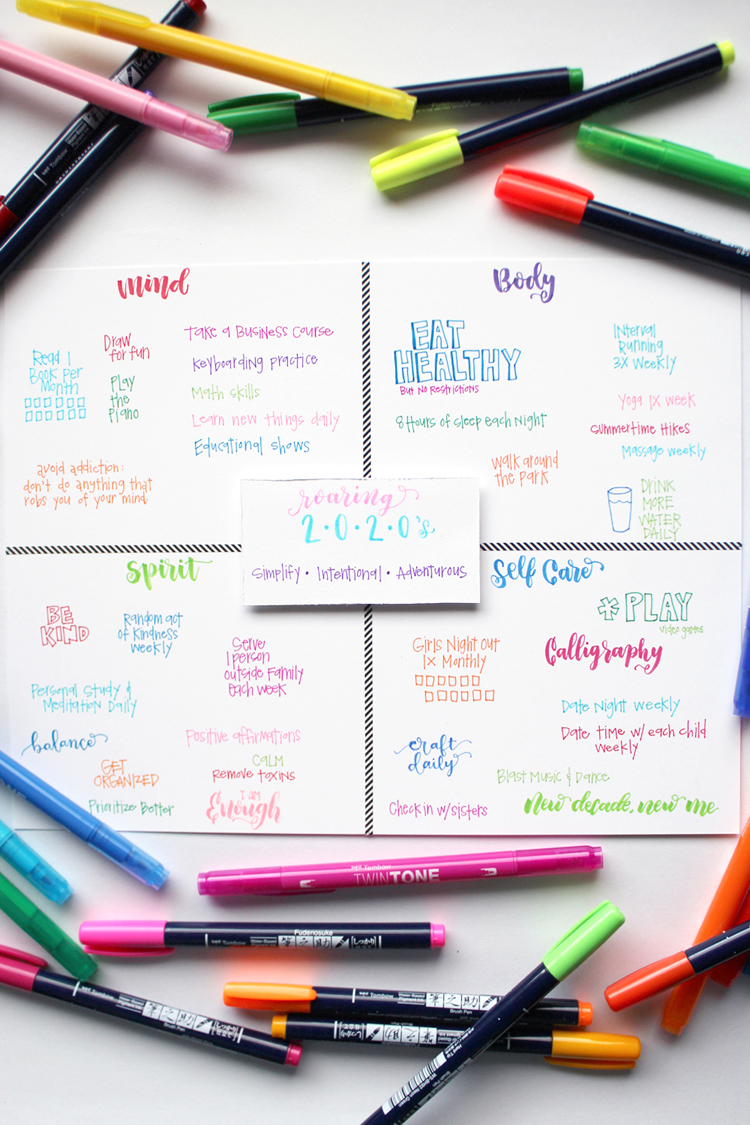 Mind
Read 1
Book per
Month
Draw
for fun
Play
the
Piano
Take a Business Course
Keyboarding practice
Math skills
Learn new things daily
Educational shows
avoid addiction:
don't do anything that
robs you of your mind
Body
EAT
HEALTHY
But No Restrictions
Interval
Running
3X Weekly
Yoga 1X week
Summertime Hikes
Massage weekly
8 Hours of sleep each Night
Walk around
the Park
DRINK
MORE
WATER
DAILY
roaring
2•0•2•0's
Simplify • Intentional • Adventurous
Spirit
BE
KIND
Random act
of Kindness
weekly
Serve
1 person
outside Family
Each week
Personal Study &
Meditation Daily
balance
Positive affirmations
GET
ORGANIZED
CALM
Remove toxins
Prioritize Better
I AM
Enough
Self Care
*PLAY
video games
Girls Night Out
1X Monthly
Calligraphy
Date Night weekly
Date time w/ each child
weekly
craft
daily
Blast Music & Dance
Check in w/sisters
New decade, new me
Tombow
TWINTONE
Fudenosuke
Tombow
Brush Pen
Tombow
Brush Pen